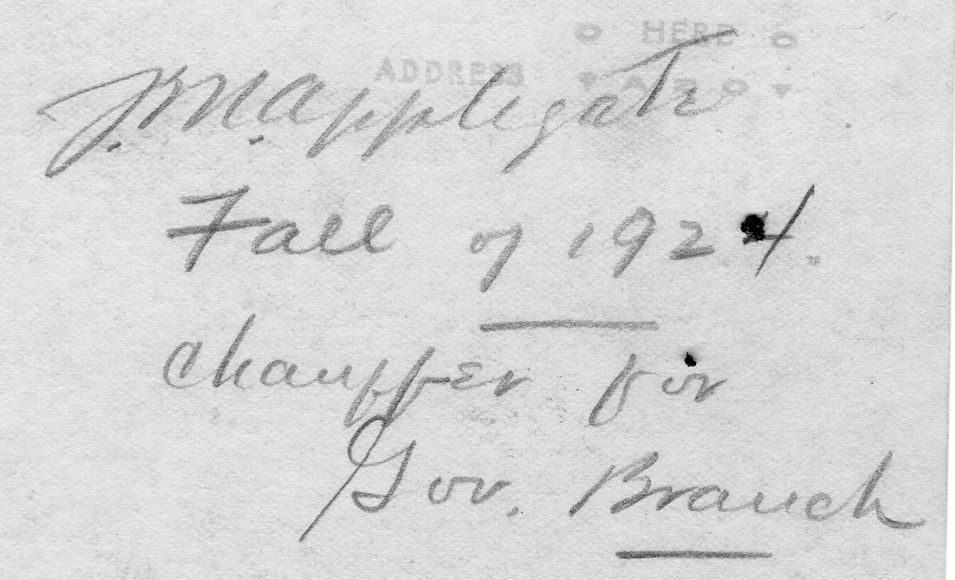 HERE
ADDRESS AZO
J.M. Applegate
Fall of 1924.
chauffer for
Gov. Branch